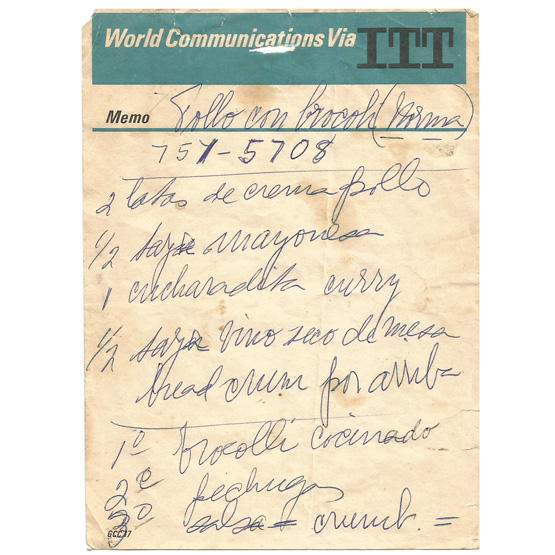 World Communications Via ITT
Memo Pollo con brocoli (Norma)
751-5708
2 latas de crema pollo
1/2 taza mayonesa
1 cucharadita curry
1/2 taza vino seco de mesa
bread crum por arriba
1º brocolli cocinado
2º pechugas
3º salsa + crumb. =
GCC 17